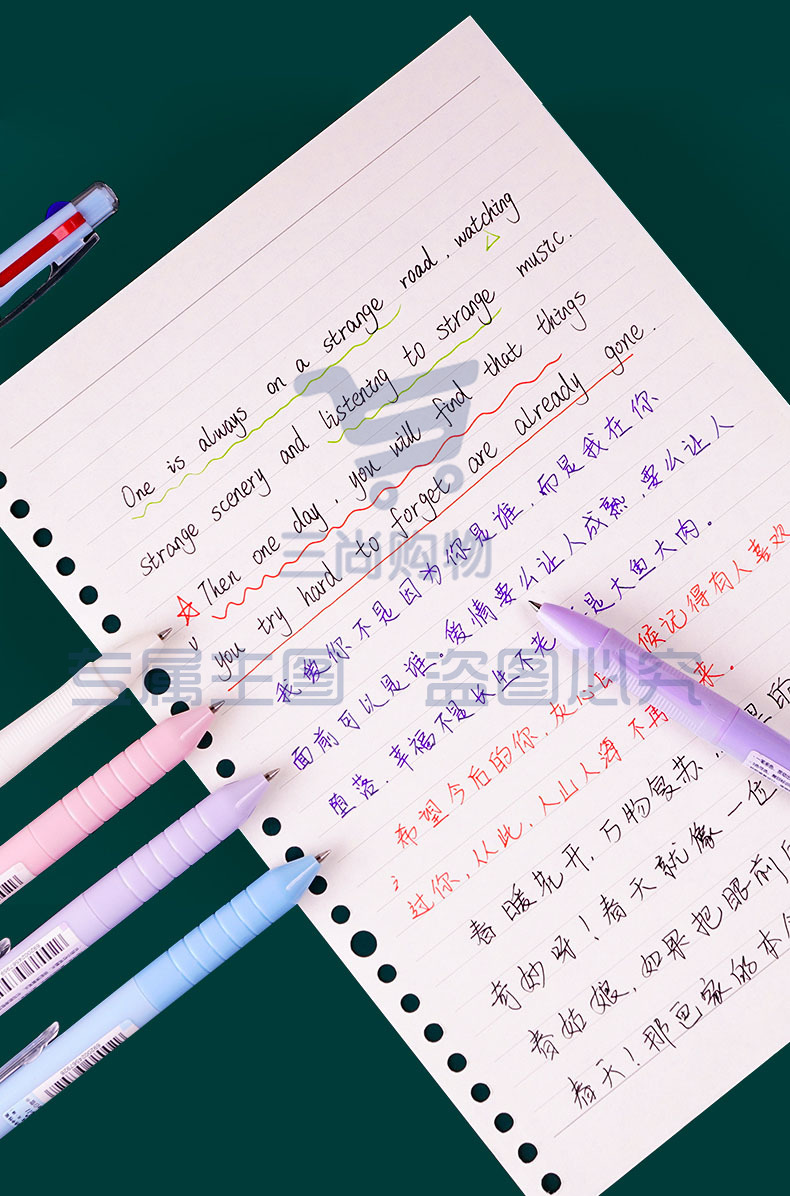 One is always on a strange road, watching
strange scenery and listening to strange music.
Then one day, you will find that things
you try hard to forget are already gone.
我爱你不是因为你是谁,而是我在你
面前可以是谁。爱情要么让人成熟,要么让人
堕落,幸福不是长生不老 是大鱼大肉。
希望今后的你,灰心 候记得有人喜欢
过你,从此,人山人海 不再 来。
春暖花开,万物复苏
奇妙呀!春天就像一位
春姑娘,如果把眼前
春天!那画家的本
三尚购物
专属主图 盗图必究